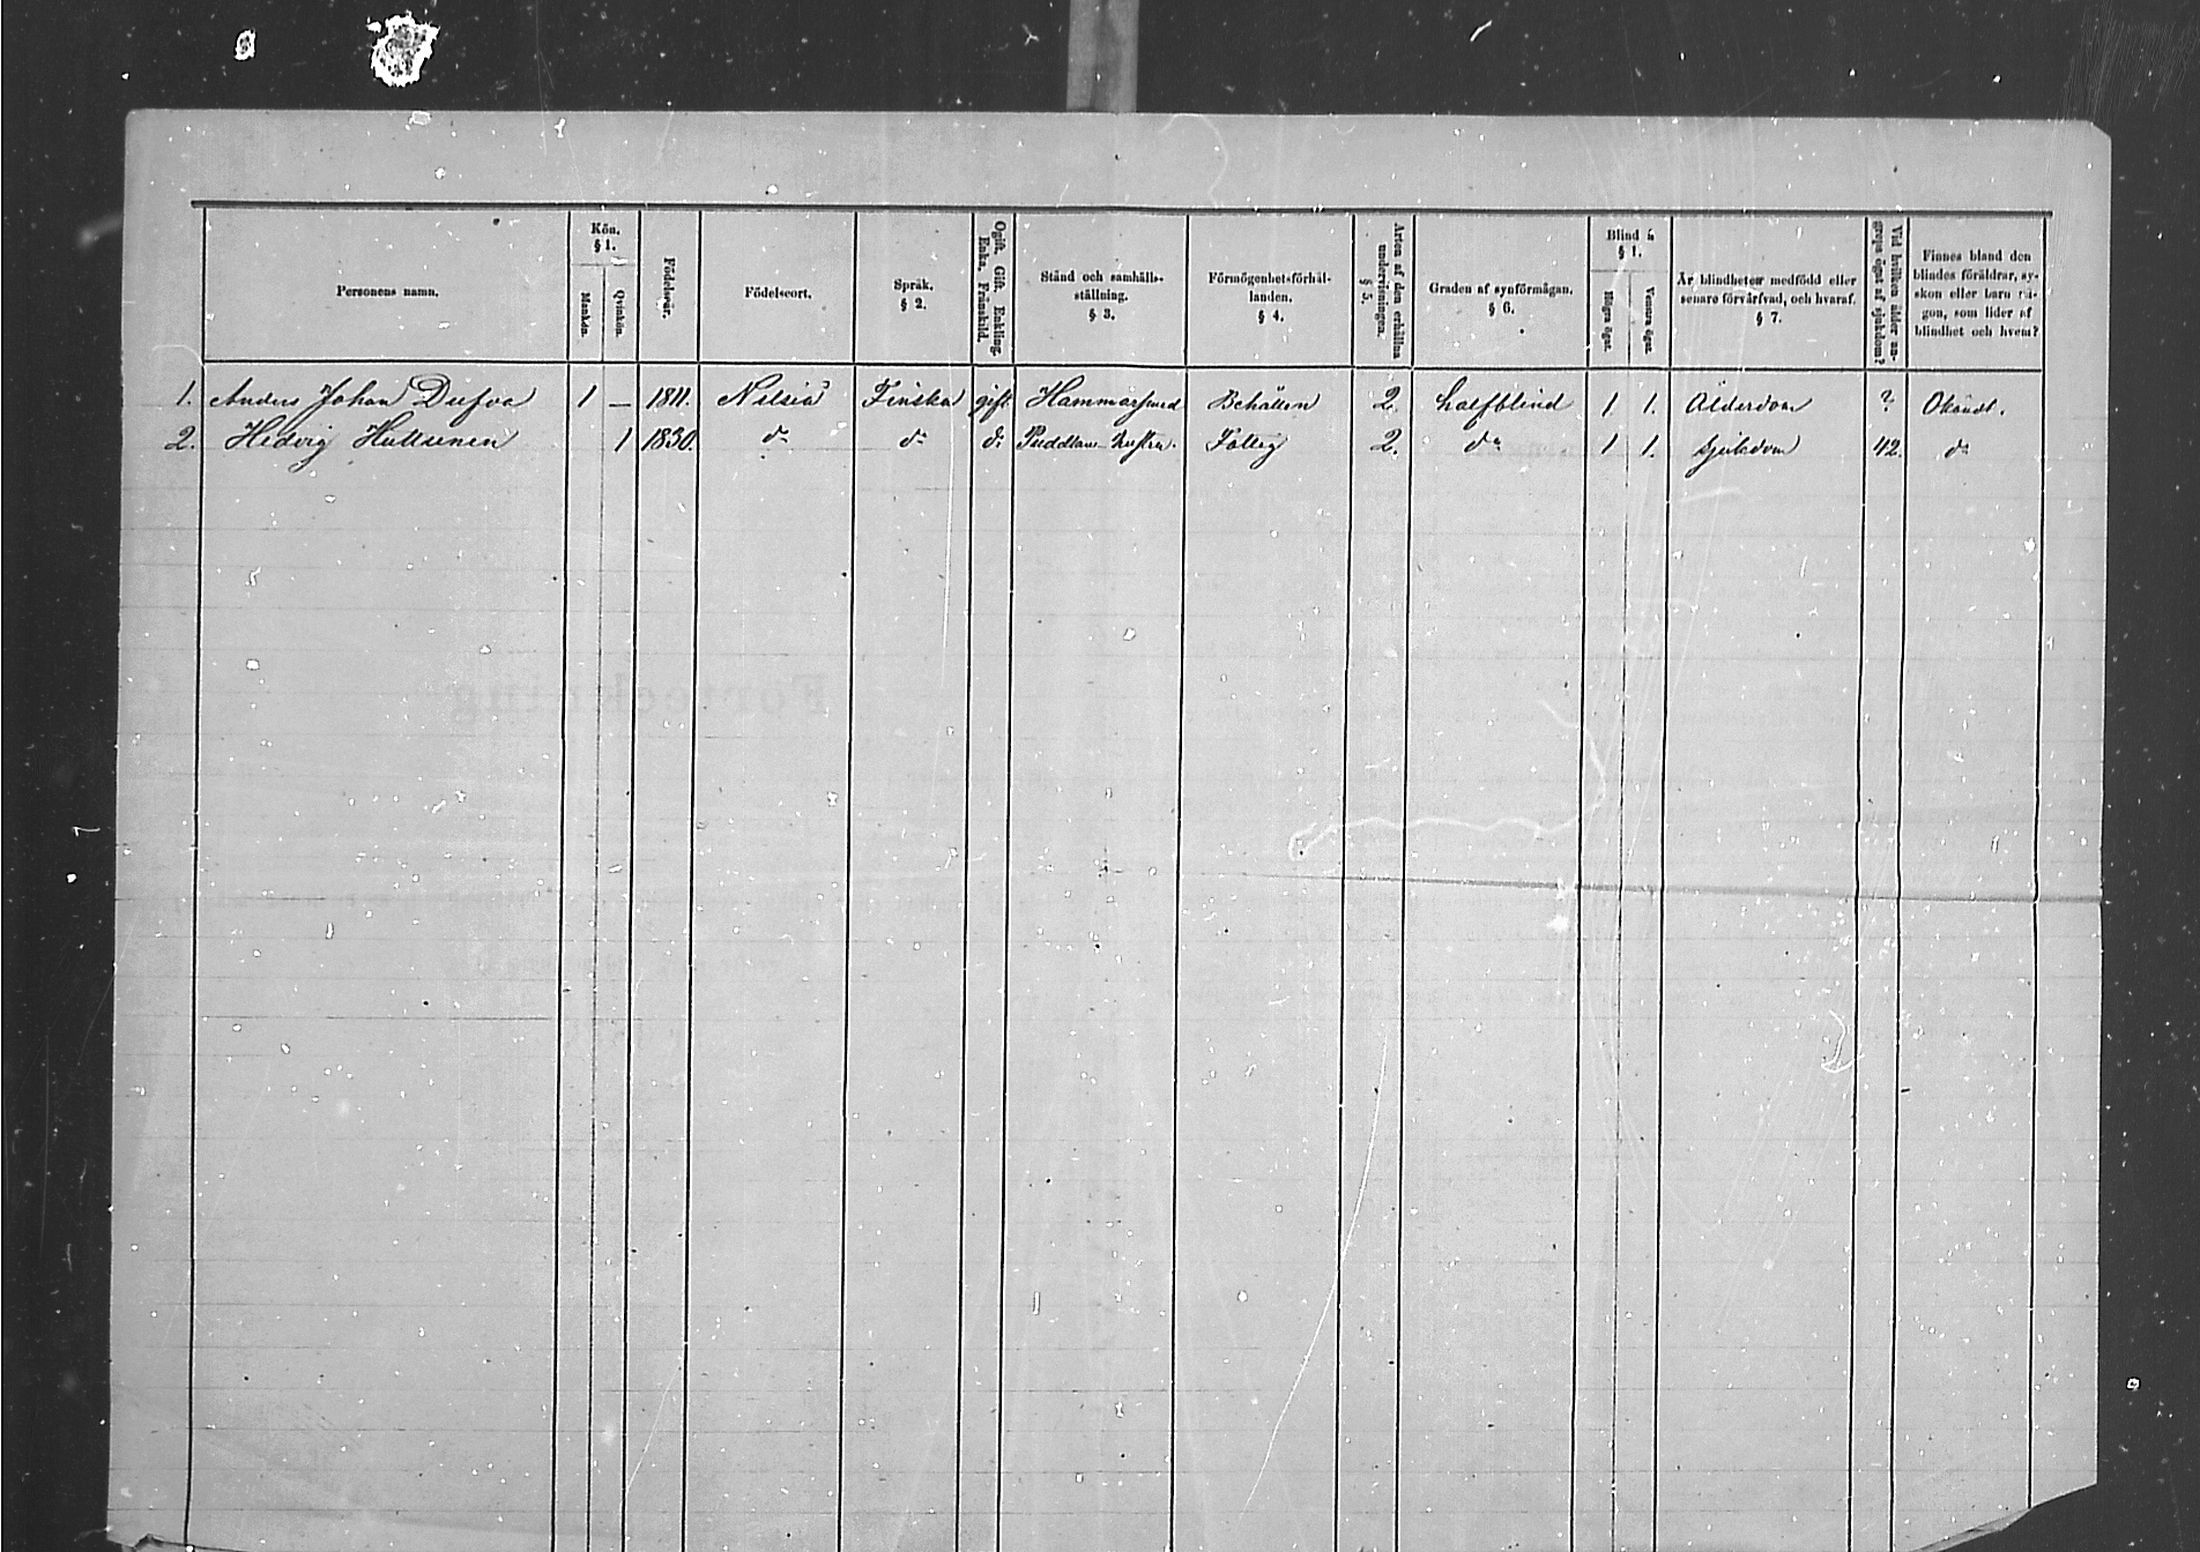 Personens namn.
Kön.
§ 1.
Mankön.
Qvinkön.
Födelseår.
Födelseort.
Språk.
§ 2.
Ogift, Gift, Enkling,
Enka, Frånskild.
Stånd och samhälls-
ställning.
§ 3.
Förmögenhetsförhål-
landen.
§ 4.
Arten af den erhållna
undervisningen.
§ 5.
Graden af synförmågan.
§ 6.
Blind å
§ 1.
Högra ögat.
Venstra ögat.
Är blindheten medfödd eller
senare förvärfvad, och hvaraf.
§ 7.
Vid hvilken ålder an-
greps ögat af sjukdom?
Finnes bland den
blindes föräldrar, sy-
skon eller barn nå-
gon, som lider af
blindhet och hvem?
1. Anders Johan Dufva 1 — 1811. Nilsiä Finska gift Hammarsmed Behållen 2. halfblind 1 1. Ålderdom ? Okändt.
2. Hedvig 1 1830. do do do Puddlare Fattig 2. do 1 1. sjukdom 42. do
Förteckning